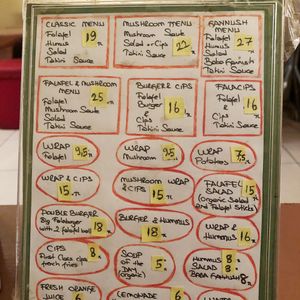 CLASSIC MENU
Falafel
Humus
Salad
Tahini Sauce
19
MUSHROOM MENU
Mushroom Saute
Salad or Cips
Tahini Sauce
22
FANNUSH MENU
Falafel
Humus
Salad
Baba Gannush
Tahini Sauce
27
FALAFEL & MUSHROOM
MENU
Falafel
Mushroom Saute
Salad
Tahini Sauce
25
BURGER & CIPS
Falafel
Burger
&
Cips
Tahini Sauce
16
FALACIPS
Falafel
&
Cips
Tahini Sauce
16
WRAP
Falafel
9,5
WRAP
Mushroom
9,5
WRAP
Potatoes
7,5
WRAP & CIPS
15
MUSHROOM WRAP
& CIPS
15
FALAFEL
SALAD
(Organic Salad
and Falafel Sticks)
15
DOUBLE BURGER
Big Falaburger
with 2 falafel ball
18
BURGER & HUMMUS
18
WRAP &
HUMMUS
16
CIPS
First Class cips
french fries
8
SOUP
OF THE
DAY
(organic)
5
HUMMUS
8
SALAD
8
BABA GANNUSH
8
FRESH ORANGE
JUICE
6
LEMONADE
6